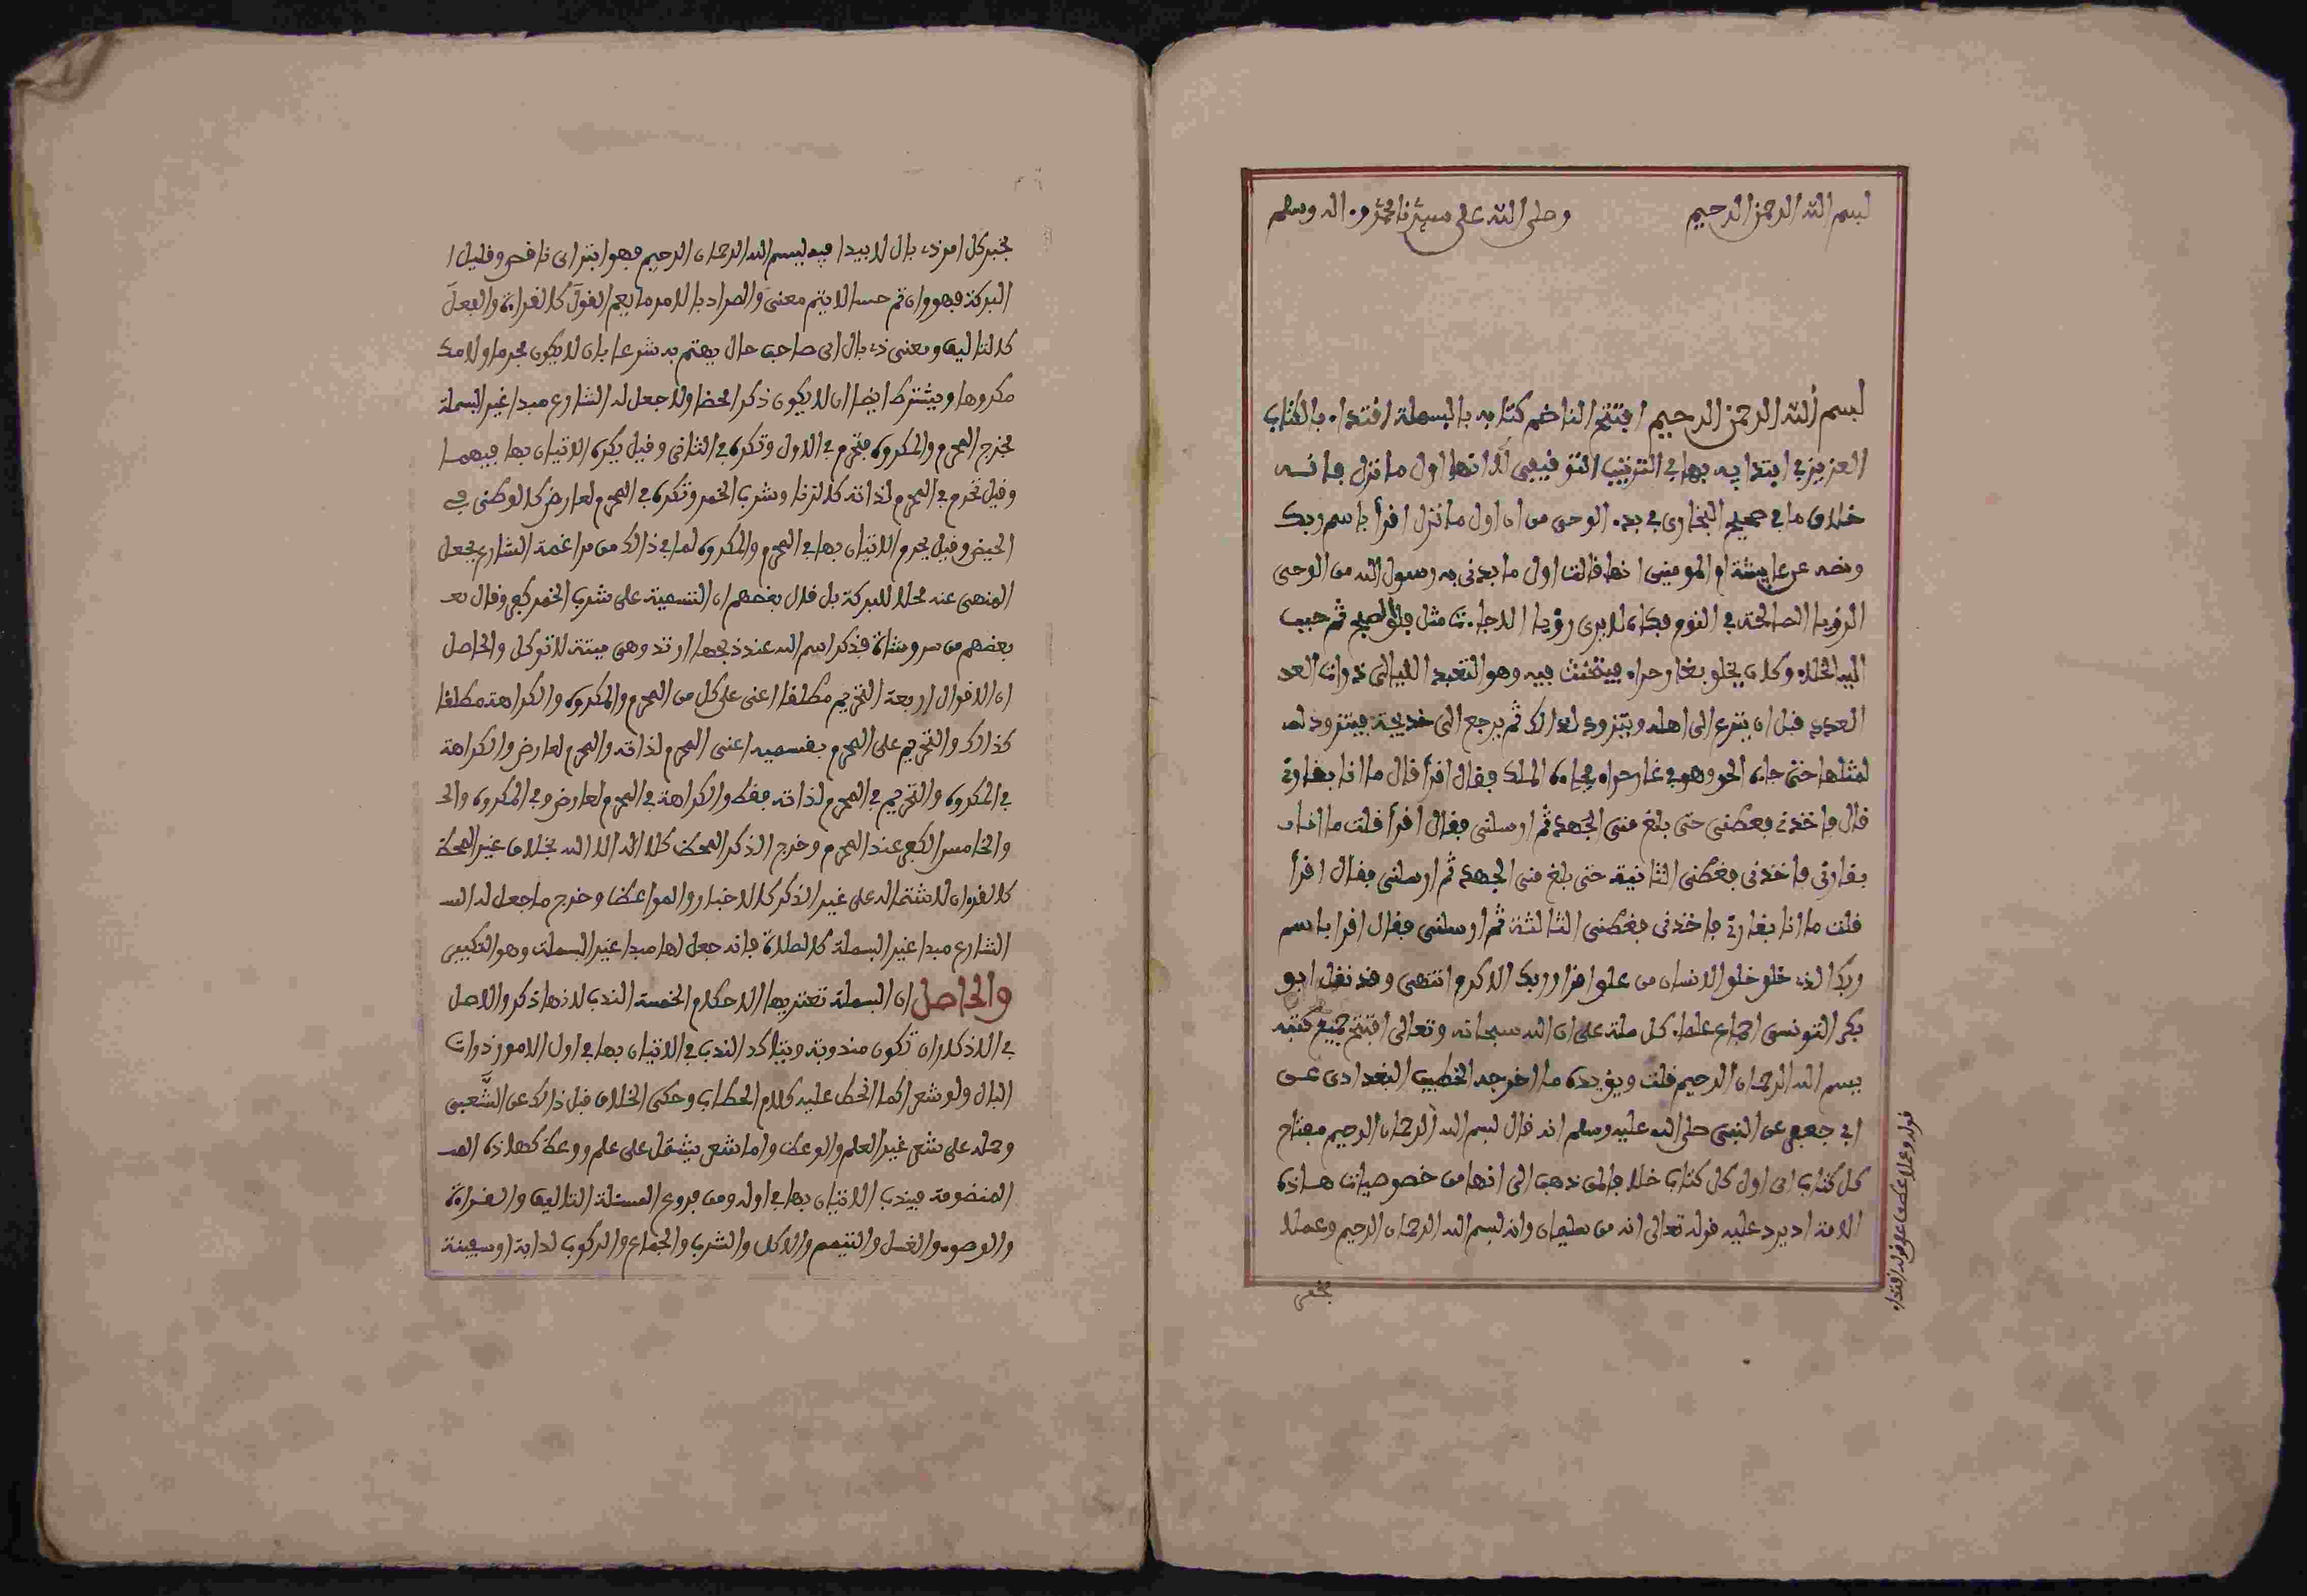 بسم الله الرحمن الرحيم وصلى الله على سيدنا محمد وءاله وسلم
بسم الله الرحمن الرحيم افتتح الناضم كتابه بالبسملة اقتداء بالكتاب
العزيز في ابتدايه بها في الترتيب التوفيفي لا انها اول ما نزل فانه
خلاف ما في صحيح البخاري في بدء الوحي من ان اول ما نزل اقرأ باسم ربك
ونصه عن عايشة ام المومنين انها قالت اول ما بدئ به رسول الله من الوحي
الرؤيا الصالحة في النوم فكان لا يرى رؤيا الا جاءت مثل فلق الصبح ثم حبب
اليه الخلاء وكان يخلو بغار حراء فيتحنث فيه وهو التعبد الليالي ذوات العد
العدد قبل ان ينزع الى اهله ويتزود لذالك ثم يرجع الى خديجة فيتزود لمـ
لمثلها حتى جاءه الحق وهو في غار حراء فجاءه الملك فقال اقرأ قال ما انا بقارئ
قال فاخذني فغطني حتى بلغ مني الجهد ثم ارسلني فقال اقرأ قلت ما انا بـ
بقارئ فاخذني فغطني الثانية حتى بلغ مني الجهد ثم ارسلني فقال اقرأ
قلت ما انا بقارئ فاخذني فغطني الثالثة ثم ارسلني فقال اقرا باسم
ربك الذي خلق خلق الانسان من علق اقرا وربك الاكرم انتهى وقد نقل ابو
بكر التونسي اجماع علماء كل ملة على ان الله سبحانه وتعالى افتتح جميع كتبه
ببسم الله الرحمان الرحيم قلت ويؤيده ما اخرجه الخطيب البغدادي عن
ابي جعفر عن النبي صلى الله عليه وسلم انه قال بسم الله الرحمان الرحيم مفتاح
كل كتاب اي اول كل كتاب خلافا لمن ذهب الى انها من خصوصيات هاذه
الامة اذ يرد عليه قوله تعالى انه من سليمان وانه بسم الله الرحمان الرحيم وعملا
بخبر
قوله وعملا عطف على قوله اقتداء
بخبر كل امر ذي بال لا يبدا فيه ببسم الله الرحمان الرحيم فهو ابتر اي ناقص وقليل ا
البركة فهو وان تم حسا لا يتم معنى والمراد بالامر ما يعم القول كالقراءة والفعل
كالتاليف ومعنى ذي بال اي صاحب حال يهتم به شرعا بان لا يكون محرما ولا مكـ
مكروها ويشترط ايضا ان لا يكون ذكرا محضا ولا جعل له الشارع مبدا غير البسملة
فخرج المحرم والمكروه فتحرم في الاول وتكره في الثاني وقيل يكره الاتيان بها فيهما
وقيل تحرم في المحرم لذاته كالزنا وشرب الخمر وتكره في المحرم لعارض كالوطئ في
الحيض وقيل يحرم الاتيان بها في المحرم والمكروه لما في ذالك من مراغمة الشارع بجعل
المنهي عنه محلا للبركة بل قال بعضهم ان التسمية على شرب الخمر كفر وقال بعـ
بعضهم من سرق شاة فذكر اسم الله عند ذبحها ارتد وهي ميتة لا توكل والحاصل
ان الاقوال اربعة التحريم مطلقا اعني على كل من المحرم والمكروه والكراهة مطلقا
كذالك والتحريم على المحرم بقسميه اعني المحرم لذاته والمحرم لعارض والكراهة
في المكروه والتحريم في المحرم لذاته فقط والكراهة في المحرم لعارض وفي المكروه والخـ
والخامس الكفر عند المحرم وخرج الذكر المحض كلا اله الا الله بخلاف غير المحض
كالقران لاشتماله على غير الذكر كالاخبار والمواعظ وخرج ما جعل له الشـ
الشارع مبدا غير البسملة كالصلاة فانه جعل لها مبدا غير البسملة وهو التكبير
والحاصل ان البسملة تعتريها الاحكام الخمسة الندب لانها ذكر والاصل
في الاذكار ان تكون مندوبة ويتاكد الندب في الاتيان بها في اول الامور ذوات
البال ولو شعرا كما انحط عليه كلام الحطاب وحكى الخلاف قبل ذالك عن الشعبي
وحمله على شعر غير العلم والوعظ واما شعر يشتمل على علم ووعظ كهاذه المـ
المنضومة فيندب الاتيان بها في اوله ومن فروع المسئلة التاليف والقراءة
والوضوء والغسل والتيمم والاكل والشرب والجماع والركوب لدابة او سفينة